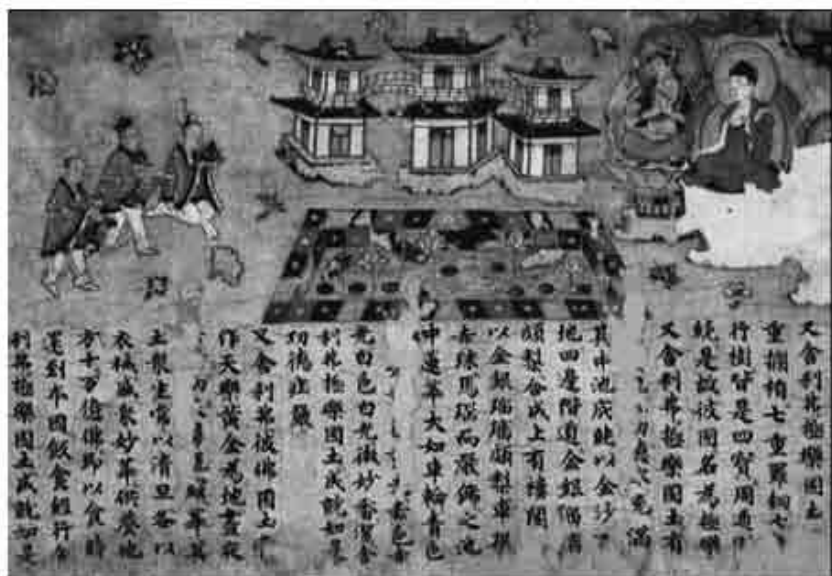 又舍利弗極樂國土
重欄楯七重羅網七
行樹皆是四寶周
繞是故彼國名為極樂
又舍利弗極樂國土有
充滿
其中池底純以金沙
地四邊階道金銀瑠璃
頗梨合成上有樓閣
以金銀瑠璃頗梨車磲
赤珠馬瑙而嚴飾之池
中蓮華大如車輪青色
赤色赤
光白色白光微妙香潔舍
利弗極樂國土成就如是
功德莊嚴
又舍利弗彼佛國土
作天樂黃金為地晝夜
羅華其
土眾生常以清旦各以
衣裓盛眾妙華供養他
方十万億佛即以食時
還到本國飯食經行舍
利弗極樂國土成就如是